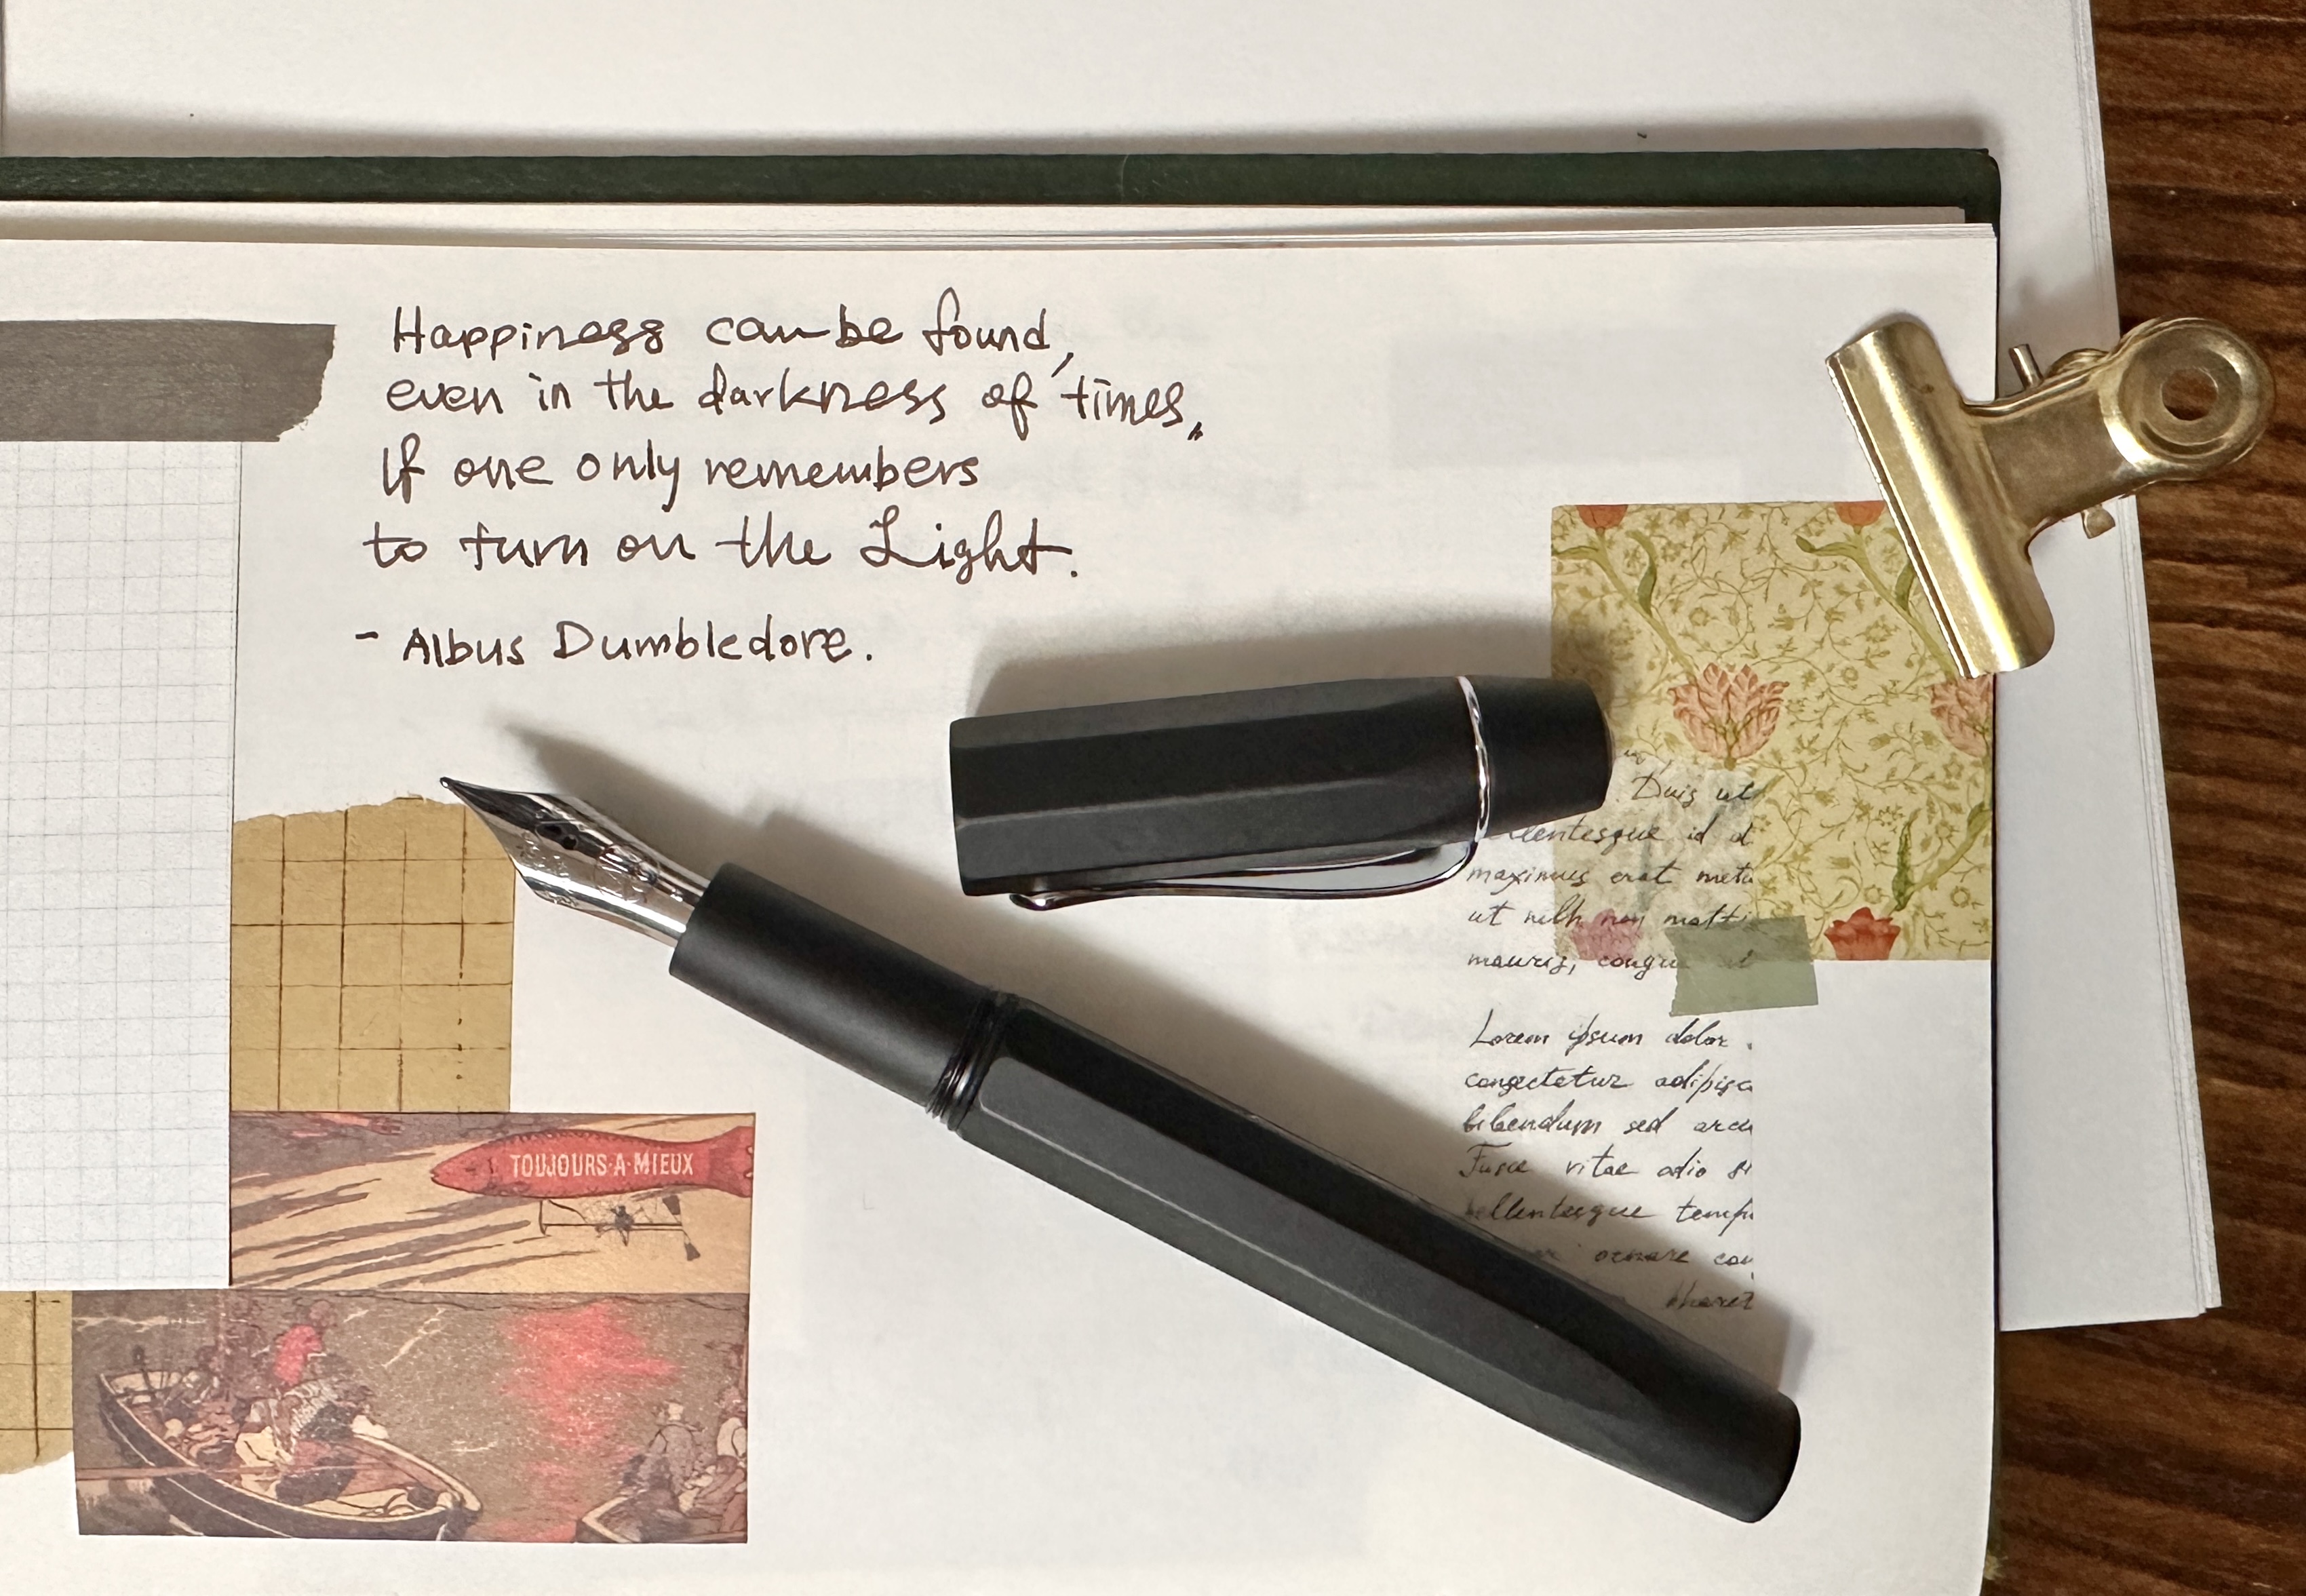 Happiness can be found,
even in the darkness of times,
If one only remembers
to turn on the Light.
- Albus Dumbledore.
. Duis ut
maximus erat metu
ut nibh non matti
mauris, congue
Lorem ipsum dolor
consectetur adipisc
bibendum sed arcu
Fusce vitae odio
tempu
ornare
TOUJOURS-A-MIEUX